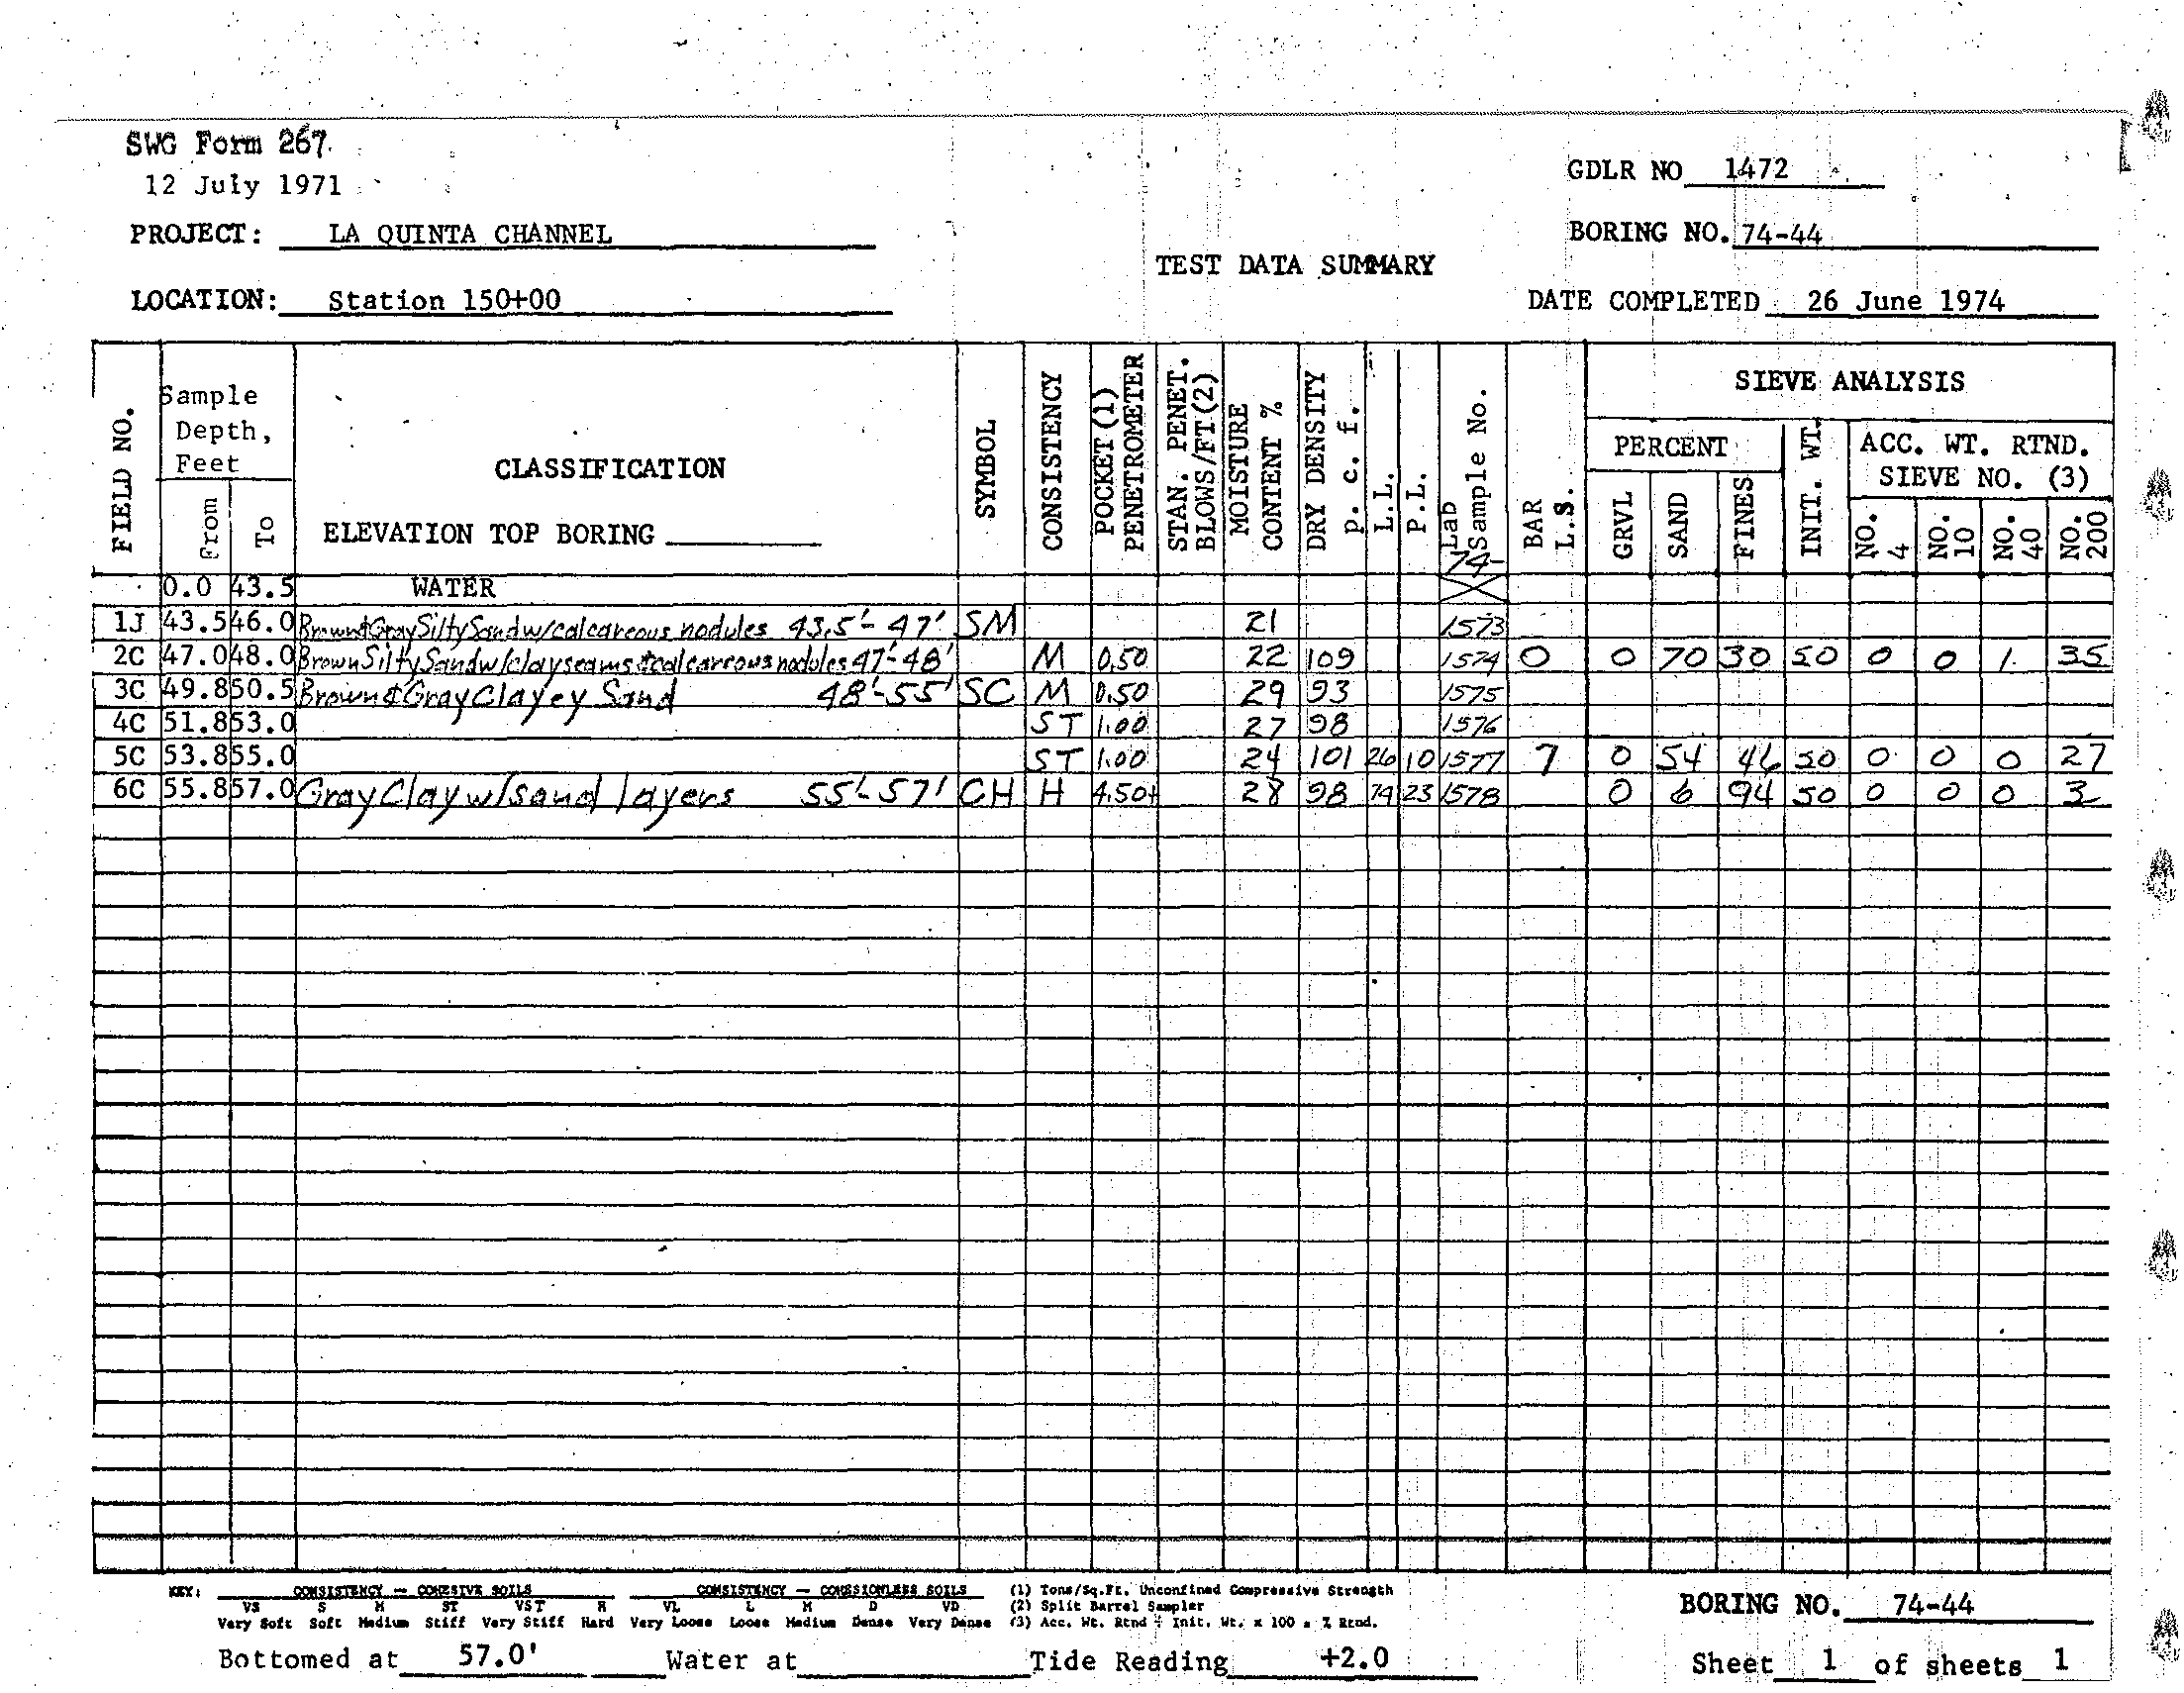 SWG Form 267
12 July 1971
GDLR NO 1472
PROJECT: LA QUINTA CHANNEL
BORING NO. 74-44
TEST DATA SUMMARY
LOCATION: Station 150+00
DATE COMPLETED 26 June 1974
FIELD NO.
Sample Depth, Feet
From
To
CLASSIFICATION
ELEVATION TOP BORING
SYMBOL
CONSISTENCY
POCKET (1) PENETROMETER
STAN. PENET. BLOWS/FT(2)
MOISTURE CONTENT %
DRY DENSITY p. c. f.
L.L.
P.L.
Lab Sample No.
74-
BAR L.S.
SIEVE ANALYSIS
PERCENT
GRVL
SAND
FINES
INIT. WT.
ACC. WT. RTND. SIEVE NO. (3)
NO. 4
NO. 10
NO. 40
NO. 200
0.0 43.5 WATER
1J 43.5 46.0 Brown & Gray Silty Sand w/calcareous nodules 43.5'-47' SM 21 1573
2C 47.0 48.0 Brown Silty Sand w/clay seams & calcareous nodules 47'-48' M 0.50 22 109 1574 0 0 70 30 50 0 0 1 35
3C 49.8 50.5 Brown & Gray Clayey Sand 48'-55' SC M 0.50 29 93 1575
4C 51.8 53.0 ST 1.00 27 98 1576
5C 53.8 55.0 ST 1.00 24 101 26 10 1577 7 0 54 46 50 0 0 0 27
6C 55.8 57.0 Gray Clay w/sand layers 55'-57' CH H 4.50+ 28 98 74 23 1578 0 6 94 50 0 0 0 3
KEY: CONSISTENCY — COHESIVE SOILS CONSISTENCY — COHESIONLESS SOILS (1) Tons/Sq.Ft. Unconfined Compressive Strength
VS S M ST VST H VL L M D VD (2) Split Barrel Sampler
Very Soft Soft Medium Stiff Very Stiff Hard Very Loose Loose Medium Dense Very Dense (3) Acc. Wt. Rtnd ÷ Init. Wt. x 100 = % Rtnd.
BORING NO. 74-44
Bottomed at 57.0' Water at Tide Reading +2.0
Sheet 1 of sheets 1